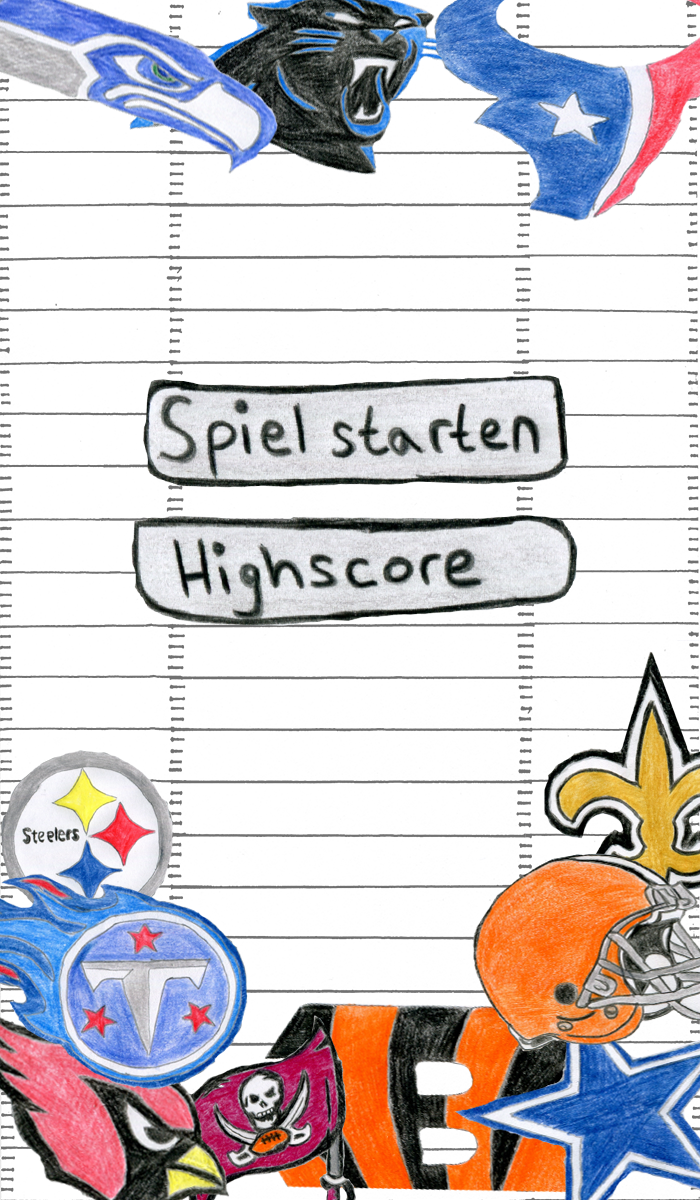 Spiel starten
Highscore
Steelers
T
B